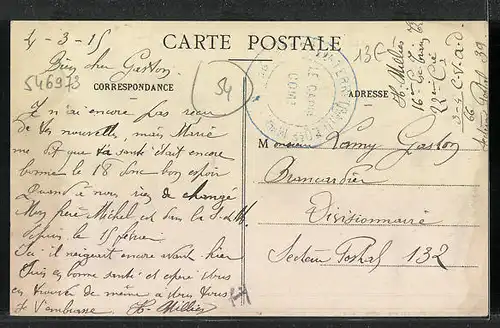 4-3-15
CARTE POSTALE
13C
Bien cher Gaston
546973
54
CORRESPONDANCE
ADRESSE
Je n'ai encore pas reçu
de tes nouvelles, mais Marie
me dit que ta santé était encore
bonne le 18 donc bon espoir
Quand à nous rien de changé
Mon frère Michel est dans la
depuis le 15 février
Ici il neigeait encore avant hier
Suis en bonne santé et espère vous
en trouver de même à vous tous
Je t'embrasse H. Millier
Monsieur Lamy Gaston
Brancardier
Divisionnaire
Secteur Postal 132
H. Millier
16e
22e Cie
3-4 C.V.A.D.
66
39